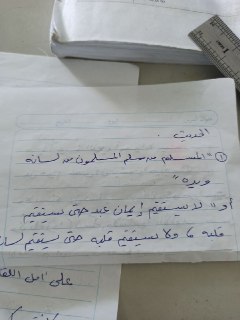 الحديث .
① " المسلم من سلم المسلمون من لسانه
ويده "
أولا لا يستقيم إيمان عبد حتى يستقيم
قلبه ما ولا يستقيم قلبه حتى يستقيم لسا
على أهل اللغ